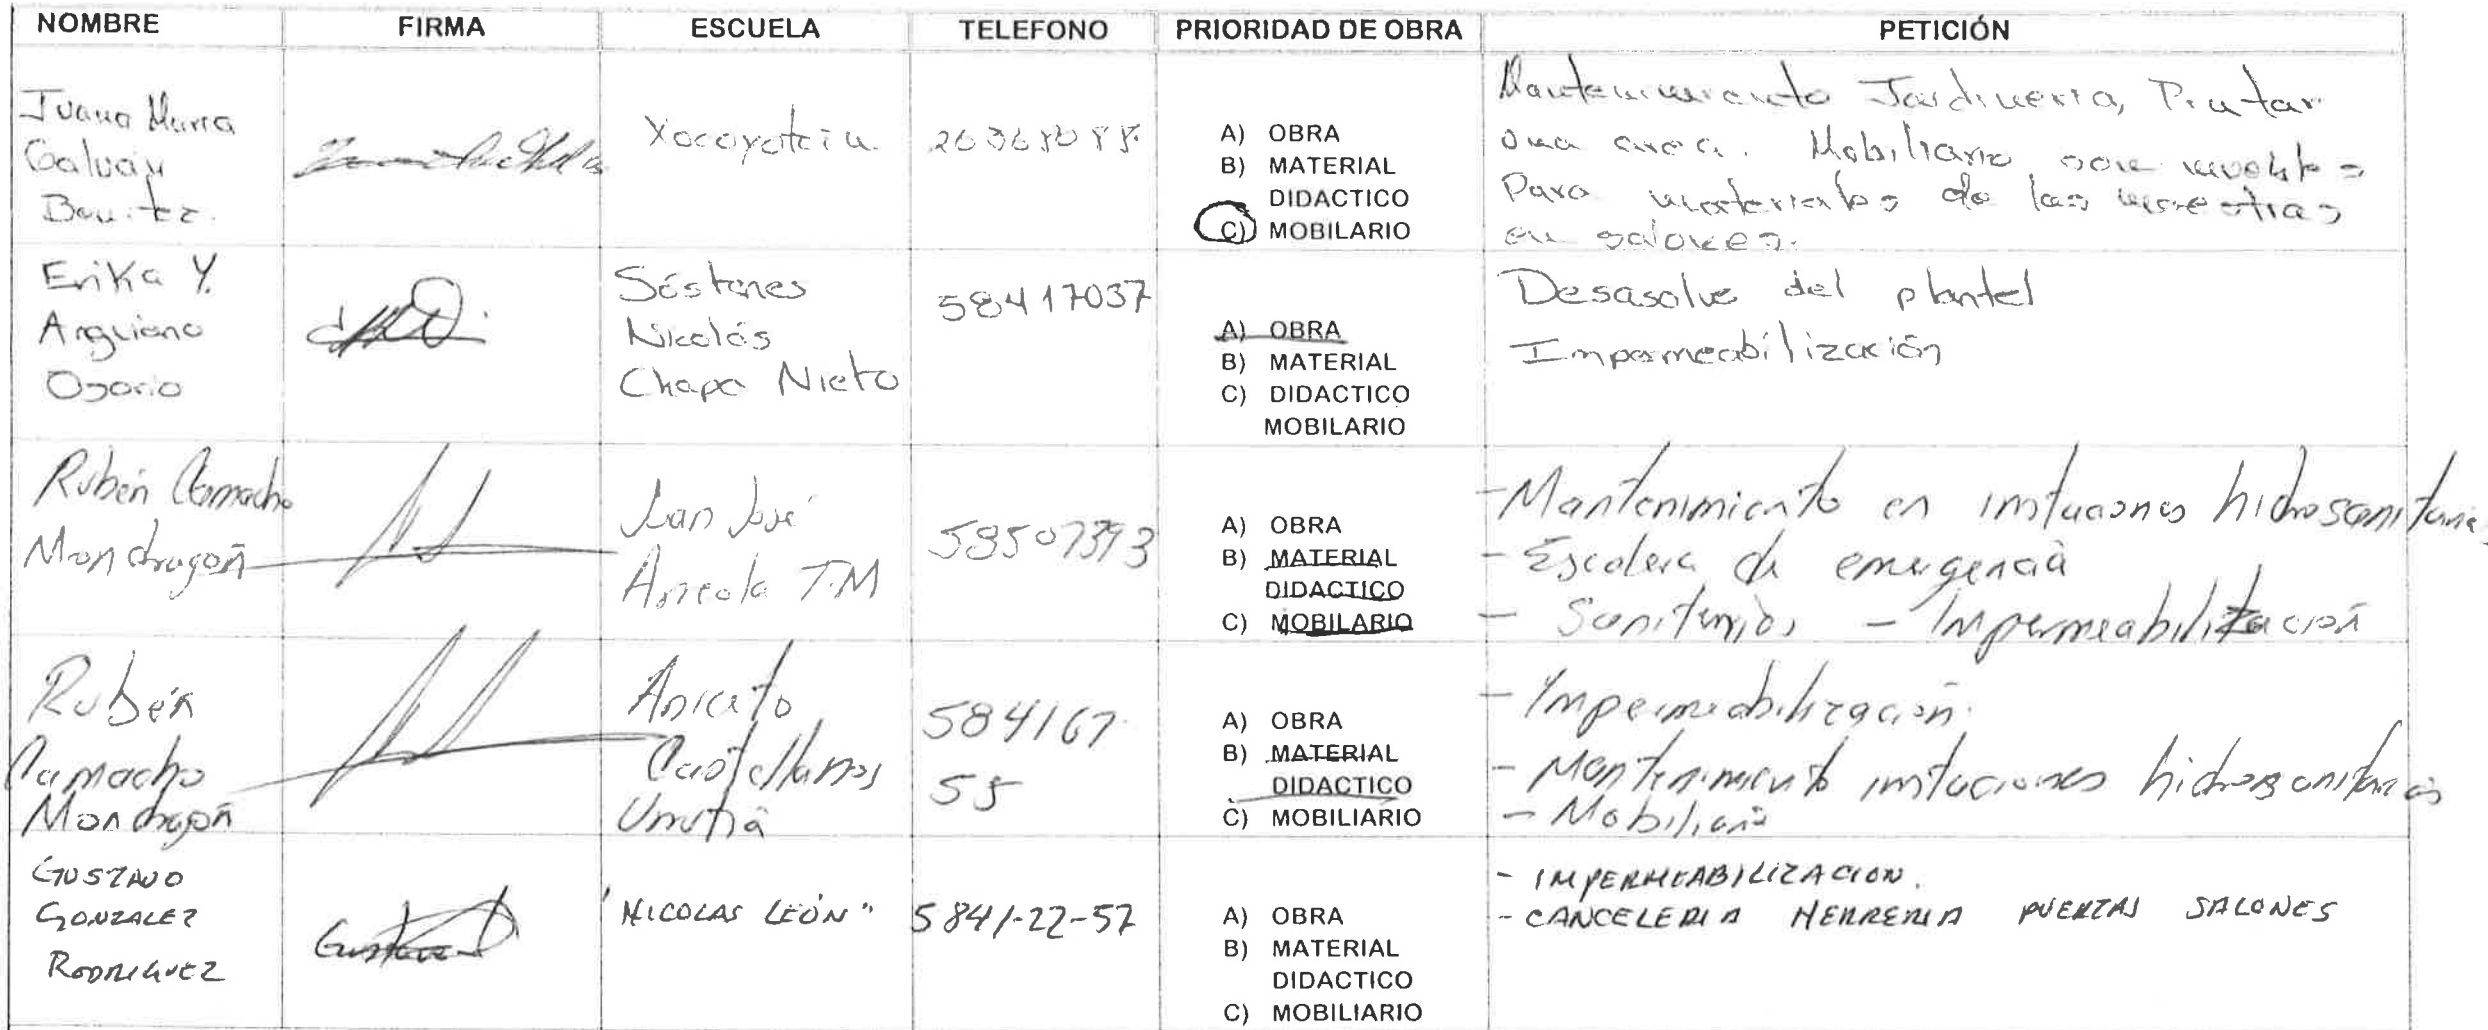 NOMBRE FIRMA ESCUELA TELEFONO PRIORIDAD DE OBRA PETICIÓN
Juana Maria
Galván
Benitez.
Xocoyotzin
A) OBRA
B) MATERIAL
DIDACTICO
C) MOBILARIO
Mantenimiento Jardineria, Pintar
una area. Mobiliario son muebles
Para materiales de las maestras
en salones.
Erika Y.
Anguiano
Osorio
Sóstenes
Nicolás
Chapa Nieto
58417037
A) OBRA
B) MATERIAL
C) DIDACTICO
MOBILARIO
Desasolve del plantel
Impermeabilización
Rubén Camacho
Mondragón
Juan José
Arreola T.M
58507393
A) OBRA
B) MATERIAL
DIDACTICO
C) MOBILARIO
- Mantenimiento en hidrosanitarias
- Escalera de emergencia
- Sanitarios - Impermeabilización
Rubén
Camacho
Mondragón
Aniceto
Castellanos
Urrutia
584167
55
A) OBRA
B) MATERIAL
DIDACTICO
C) MOBILIARIO
- Impermeabilización.
- Mantenimiento hidrosanitarias
- Mobiliario
GUSTAVO
GONZALEZ
RODRIGUEZ
Gustavo
"NICOLAS LEÓN"
5841-22-57
A) OBRA
B) MATERIAL
DIDACTICO
C) MOBILIARIO
- IMPERMEABILIZACION.
- CANCELERIA HERRERIA PUERTAS SALONES